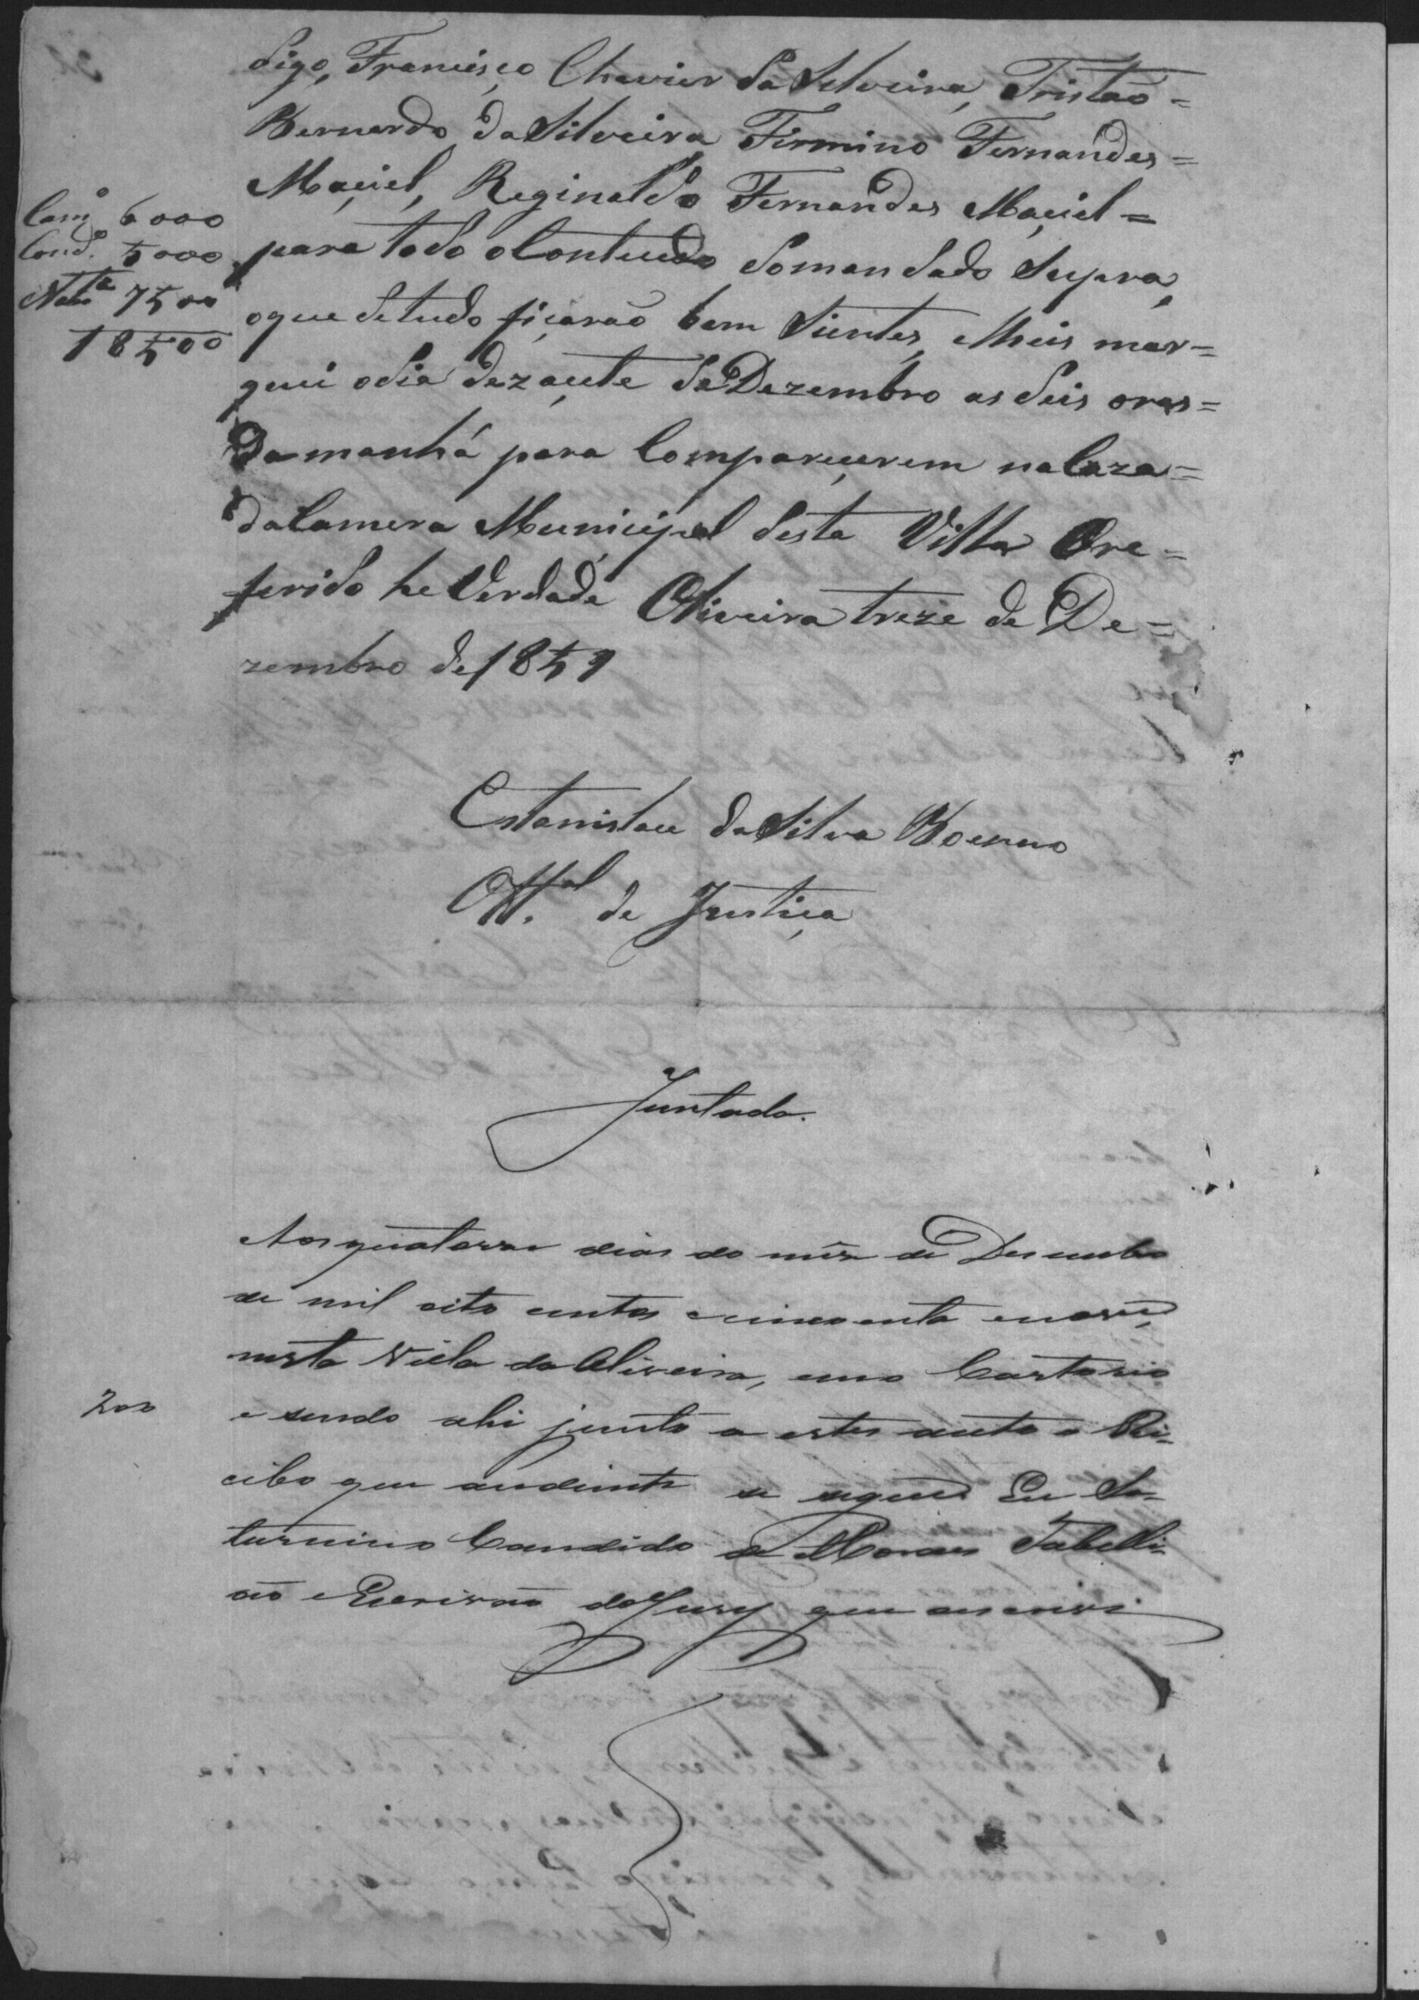 digo, Francisco, Chavier da Silveira, Tristão =
Bernardo da Silveira Firmino Fernandes =
Maçiel, Reginaldo Fernandes Maçiel =
para todo o Conteudo do mandado Supra,
o que de tudo ficarão bem Sientes, e Mais mar=
quei o dia dezaçete de Dezembro as deis oras =
da manhá para Compareçerem na Caza =
da Camera Muniçipal desta Villa O re=
ferido he Verdade Oliveira treze de De=
zembro de 1859
Cam.º 6000
Cond. 5000
7500
18500
Estanislau da Silva Boeno
Off.al de Justiça
Juntada.
Aos quatorze dias do mês de Desembro
de mil oito centos e cincoenta e nove,
nesta Villa da Oliveira, em o Cartorio
200
e sendo ahi junto a estes autos o Re-
cibo que adiante se segue Eu Sa-
turnino Candido de Moraes Tabelli-
ão e Escrivão do Jury que escrevi